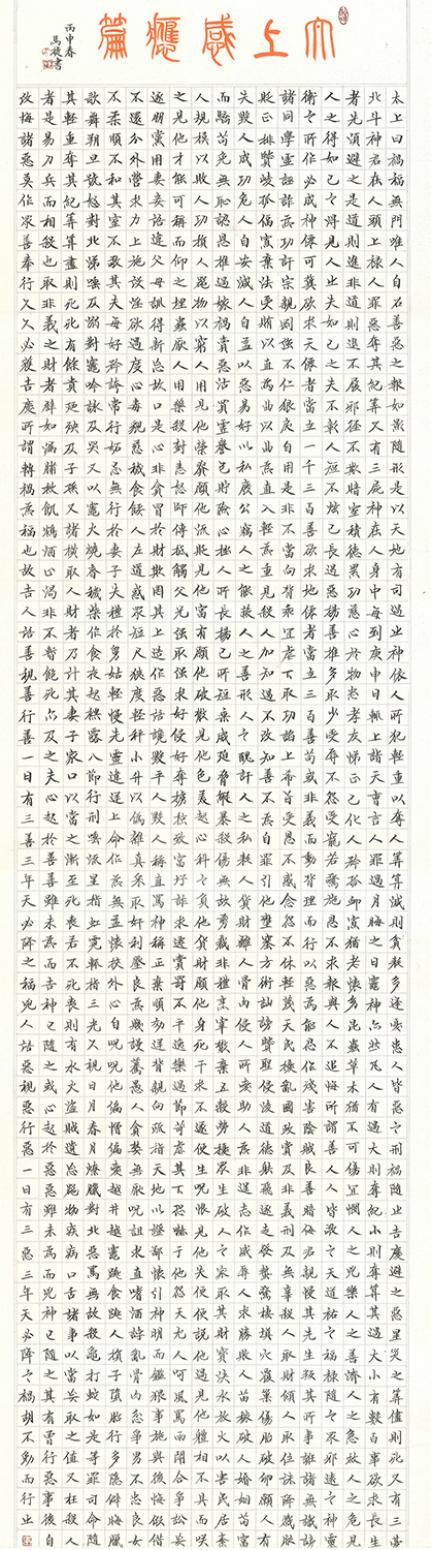 太上感應篇
丙申春
太上曰禍福無門唯人自召善惡之報如影隨形是以天地有司過之神依人所犯輕重以奪人算算減則貧耗多逢憂患人皆惡之刑禍隨之吉慶避之惡星災之算盡則死又有三台
北斗神君在人頭上錄人罪惡奪其紀算又有三尸神在人身中每到庚申日輒上詣天曹言人罪過月晦之日竈神亦然凡人有過大則奪紀小則奪算其過大小有數百事欲求長生
者先須避之是道則進非道則退不履邪徑不欺暗室積德累功慈心於物忠孝友悌正己化人矜孤恤寡敬老懷幼昆蟲草木猶不可傷宜憫人之凶樂人之善濟人之急救人之危見
人之得如己之得見人之失如己之失不彰人短不衒己長遏惡揚善推多取少受辱不怨受寵若驚施恩不求報與人不追悔所謂善人人皆敬之天道佑之福祿隨之眾邪遠之神靈
衛之所作必成神仙可冀欲求天仙者當立一千三百善欲求地仙者當立三百善苟或非義而動背理而行以惡為能忍作殘害陰賊良善暗侮君親慢其先生叛其所事誑諸無識謗
諸同學虛誣詐偽攻訐宗親剛強不仁狠戾自用是非不當向背乖宜虐下取功諂上希旨受恩不感念怨不休輕蔑天民擾亂國政賞及非義刑及無辜殺人取財傾人取位誅降戮服
貶正排賢凌孤逼寡棄法受賂以直為曲以曲為直入輕為重見殺加怒知過不改知善不為自罪引他壅塞方術訕謗聖賢侵凌道德射飛逐走發蟄驚棲填穴覆巢傷胎破卵願人有
失毀人成功危人自安減人自益以惡易好以私廢公竊人之能蔽人之善形人之醜訐人之私耗人貨財離人骨肉侵人所愛助人為非逞志作威辱人求勝敗人苗稼破人婚姻苟富
而驕苟免無恥認恩推過嫁禍賣惡沽買虛譽包貯險心挫人所長護己所短乘威迫脅縱暴殺傷無故剪裁非禮烹宰散棄五穀勞擾眾生破人之家取其財寶決水放火以害民居紊亂
規模以敗人功損人器物以窮人用見他榮貴願他流貶見他富有願他破散見他色美起心私之負他貨財願他身死干求不遂便生咒恨見他失便便說他過見他體相不具而笑
之見他才能可稱而抑之埋蠱厭人用藥殺樹恚怒師傅抵觸父兄強取強求好侵好奪擄掠致富巧詐求遷賞罰不平逸樂過節苛虐其下恐嚇於他怨天尤人呵風罵雨鬥合爭訟妄
逐朋黨用妻妾語違父母訓得新忘故口是心非貪冒於財欺罔其上造作惡語讒毀平人毀人稱直罵神稱正棄順效逆背親向疏指天地以證鄙懷引神明而鑒猥事施與後悔假借
不還分外營求力上施設淫慾過度心毒貌慈穢食餧人左道惑眾短尺狹度輕秤小升以偽雜真採取奸利壓良為賤謾驀愚人貪婪無厭咒詛求直嗜酒悖亂骨肉忿爭男不忠良女
不柔順不和其室不敬其夫每好矜誇常行妒忌無行於妻子失禮於舅姑輕慢先靈違逆上命作為無益懷挾外心自咒咒他偏憎偏愛越井越竈跳食跳人損子墮胎行多隱僻晦臘
歌舞朔旦號怒對北涕唾及溺對竈吟詠及哭又以竈火燒香穢柴作食夜起裸露八節行刑唾流星指虹霓輒指三光久視日月春月燎獵對北惡罵無故殺龜打蛇如是等罪司命隨
其輕重奪其紀算算盡則死死有餘責乃殃及子孫又諸橫取人財者乃計其妻子家口以當之漸至死喪若不死喪則有水火盜賊遺亡器物疾病口舌諸事以當妄取之值又枉殺人
者是易刀兵而相殺也取非義之財者譬如漏脯救飢鴆酒止渴非不暫飽死亦及之夫心起於善善雖未為而吉神已隨之或心起於惡惡雖未為而凶神已隨之其有曾行惡事後自
改悔諸惡莫作眾善奉行久久必獲吉慶所謂轉禍為福也故吉人語善視善行善一日有三善三年天必降之福凶人語惡視惡行惡一日有三惡三年天必降之禍胡不勉而行之